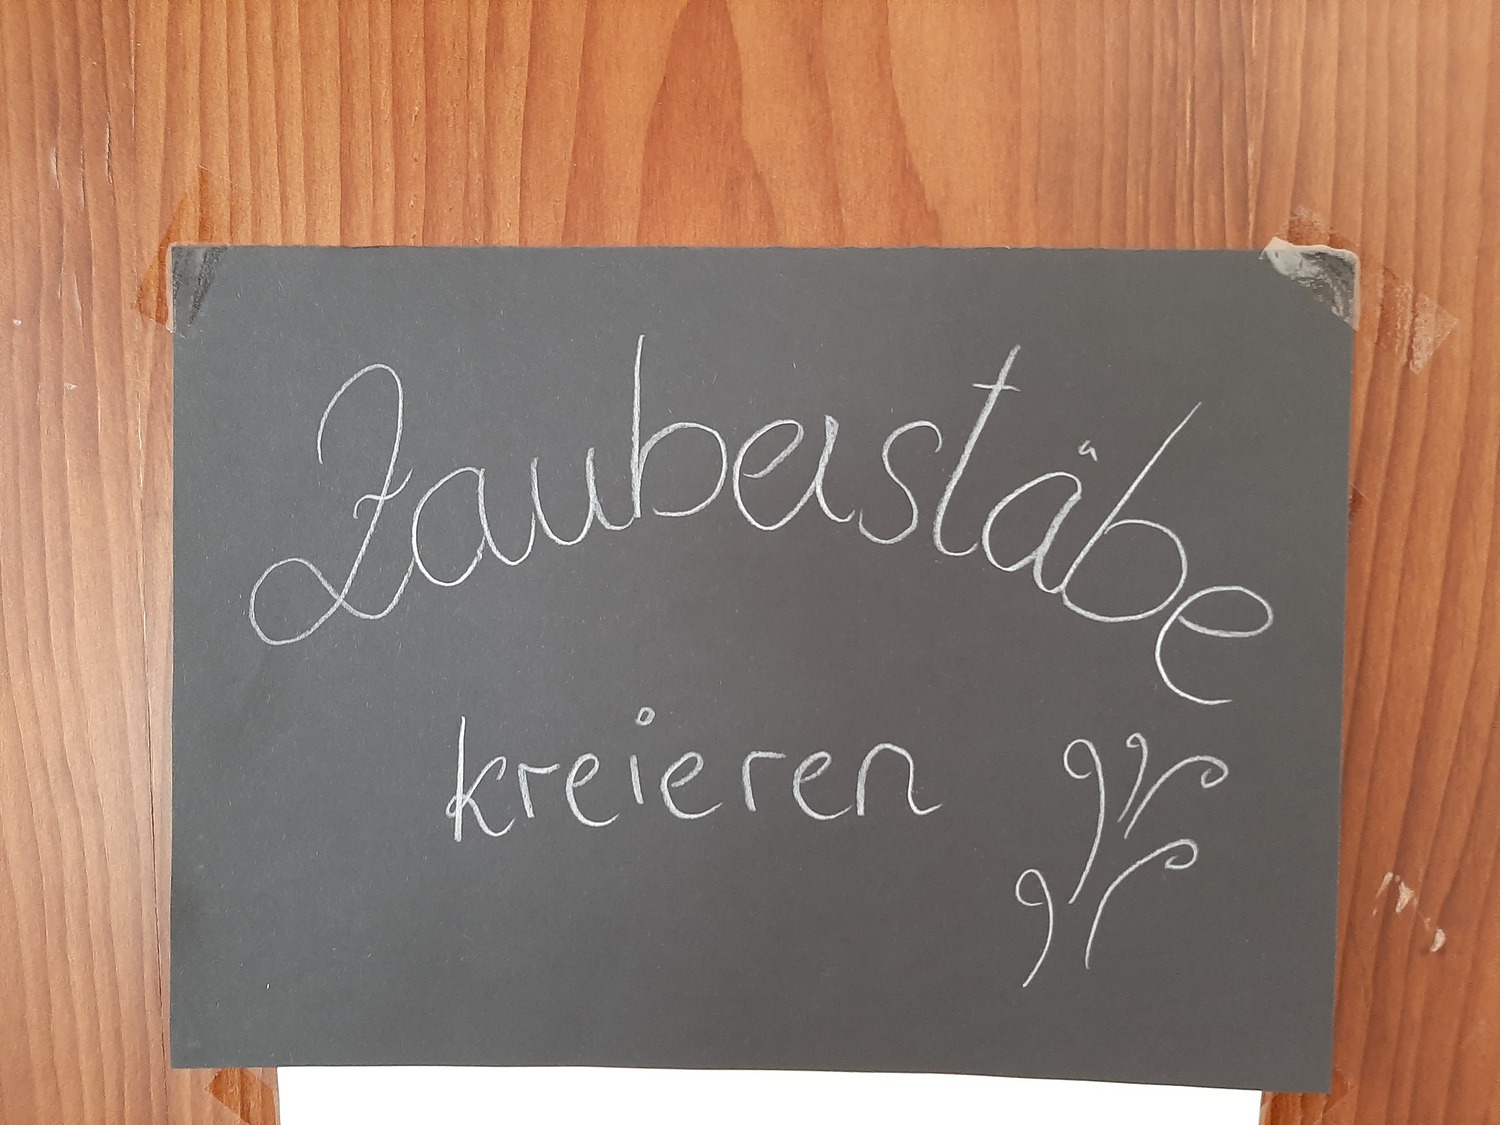 Zauberstäbe
kreieren